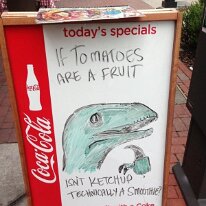 today's specials
IF TOMATOES
ARE A FRUIT
Coca-Cola
ISN'T KETCHUP
TECHNICALLY A SMOOTHIE?
Coke